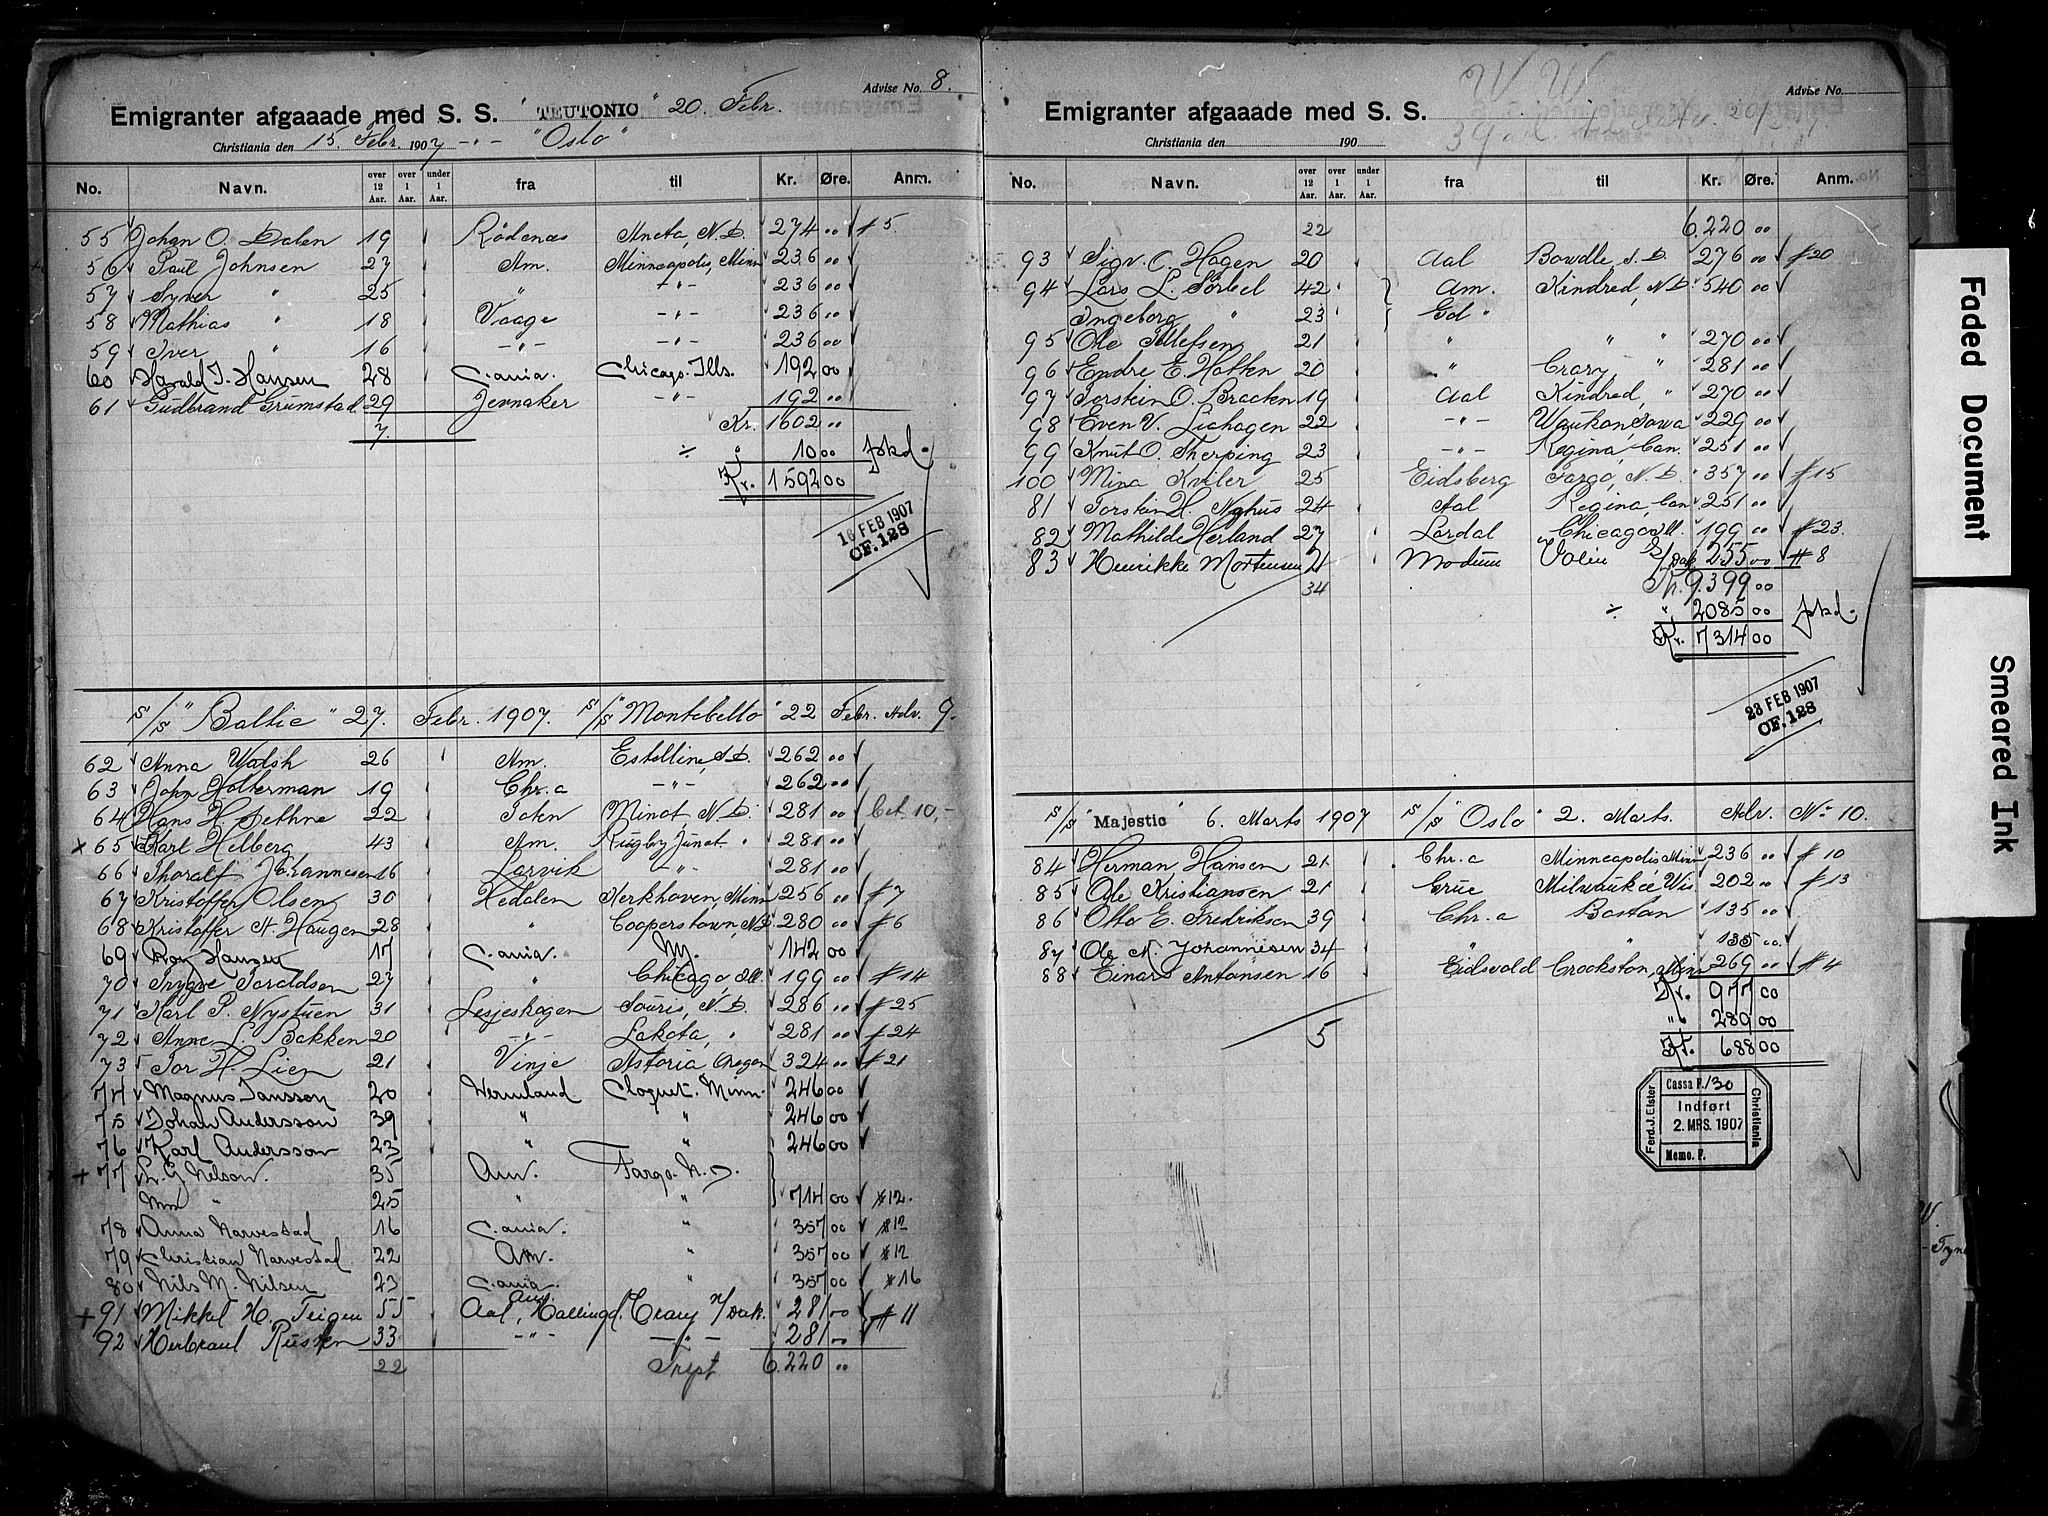 Advise No. 8.
Emigranter afgaaade med S. S. "TEUTONIC" 20. Febr.
Christiania den 15. Febr. 1907 -"- "Oslo"
No. Navn. over 12 Aar. over 1 Aar. under 1 Aar. fra til Kr. Øre. Anm.
55 Johan O. Dalen 19 Rödenæs Aneta, N.D. 274 00 # 5.
56 Paul Johnsen 27 Am. Minneapolis, Minn 236 00
57 Syver " 25 " -"- 236 00
58 Mathias " 18 Vaage -"- 236 00
59 Iver " 16 -"- -"- 236 00
60 Harald J. Hansen 28 C.ania. Chicago. Ills. 192 00
61 Gudbrand Grumstad 29 Jevnaker -"- 192 00
7. Kr. 1602 00
÷ " 10 00 fskd.
Kr. 1592 00
16 FEB 1907
OF. 128
S/S "Baltic" 27. Febr. 1907. S/S "Montebello" 22 Febr. Adv. 9.
62 Anna Walsh 26 Am. Estelline, S.D. 262 00
63 John Holterman 19 Chr.a -"- 262 00
64 Hans H. Sethne 22 Toten Minot N.D. 281 00 Cet. 10,-
x 65 Karl Helberg 43 Am. Rugby Junct. " 281 00
66 Thoralf Johannesen 16 Larvik -"- 281 00
67 Kristoffer Olsen 30 Hedalen Kerkhoven, Minn 256 00 # 7
68 Kristoffer A. Haugen 28 " Cooperstown, N.D. 280 00 # 6
69 Roy Hansen 17 C.ania. N.Y. 142 00
70 Trygve Toraldsen 27 " Chicago, Ill. 199 00 # 14
71 Karl P. Nystuen 31 Lesjeskogen Souris, N.D. 286 00 # 25
72 Anne L. Bakken 20 -"- Lakota, " 281 00 # 24
73 Tor H. Lien 21 Vinje Astoria Oregon 324 00 # 21
74 Magnus Jansson 20 Wermland Cloquet. Minn. 246 00
75 Johan Andersson 39 " " 246 00
76 Karl Andersson 23 " " 246 00
+ 77 L. G. Nelson. 35 Am. Fargo. N.D.
Mrs " 25 " " 714 00 # 12.
78 Anna Narvestad 16 C.ania. " 357 00 # 12
79 Christian Narvestad 22 Am. " 357 00 # 12
80 Nils M. Nilsen 23 C.ania. " 357 00 # 16
+ 91 Mikkel H. Teigen 55 Aal, Hallingd. Crary N/Dak. 281 00 # 11
92 Herbrand Russen 33 -"- -"- 281 00
22 Trspt 6.220 00
Advise No.
W W
Emigranter afgaaade med S. S.
Christiania den 190
No. Navn. over 12 Aar. over 1 Aar. under 1 Aar. fra til Kr. Øre. Anm.
22 6.220 00
93 Sigv. O. Hagen 20 Aal Bowdle, S.D. 276 00 # 20
94 Lars L. Sörbel 42 Am. Kindred, N.D. 540 00
Ingeborg " 23 Gol "
95 Ole Tollefsen 21 " " " 270 00
96 Endre E. Hatten 20 " Crary, " 281 00
97 Torstein O. Bracken 19 Aal Kindred, " 270 00
98 Even V. Liahagen 22 -"- Waukon, Iowa 229 00
99 Knut O. Therping 23 -"- Regina, Can. 251 00
100 Mina Kviler 25 Eidsberg Fargo, N.D. 357 00 # 15
81 Torstein H. Nghus 24 Aal Regina, Can 251 00
82 Mathilde Herland 27 Lardal Chicago Ill. 199 00 # 23.
83 Henrikke Mortensen 21 Modum Volin S/Dak 255 00 # 8
34 Kr. 9.399 00
÷ " 2085 00 fskd.
Kr. 7314 00
23 FEB 1907
OF. 128
S/S "Majestic" 6. Marts 1907 S/S "Oslo" 2. Marts. Adv. No 10.
84 Herman Hansen 21 Chr.a Minneapolis Minn 236 00 # 10
85 Ole Kristiansen 21 Grue Milwaukee Wis. 202 00 # 13
86 Otto E. Fredriksen 39 Chr.a Boston 135 00
87 Ole N. Johannesen 34 " " 135 00
88 Einar Antonsen 16 Eidsvold Crookston, Minn 269 00 # 4
Kr. 977 00
5 " 289 00
Kr. 688 00
Ferd. J. Elster
Cassa F. /30
Indført
2. MRS. 1907
Memo. F.
Christiania
Faded Document
Smeared Ink